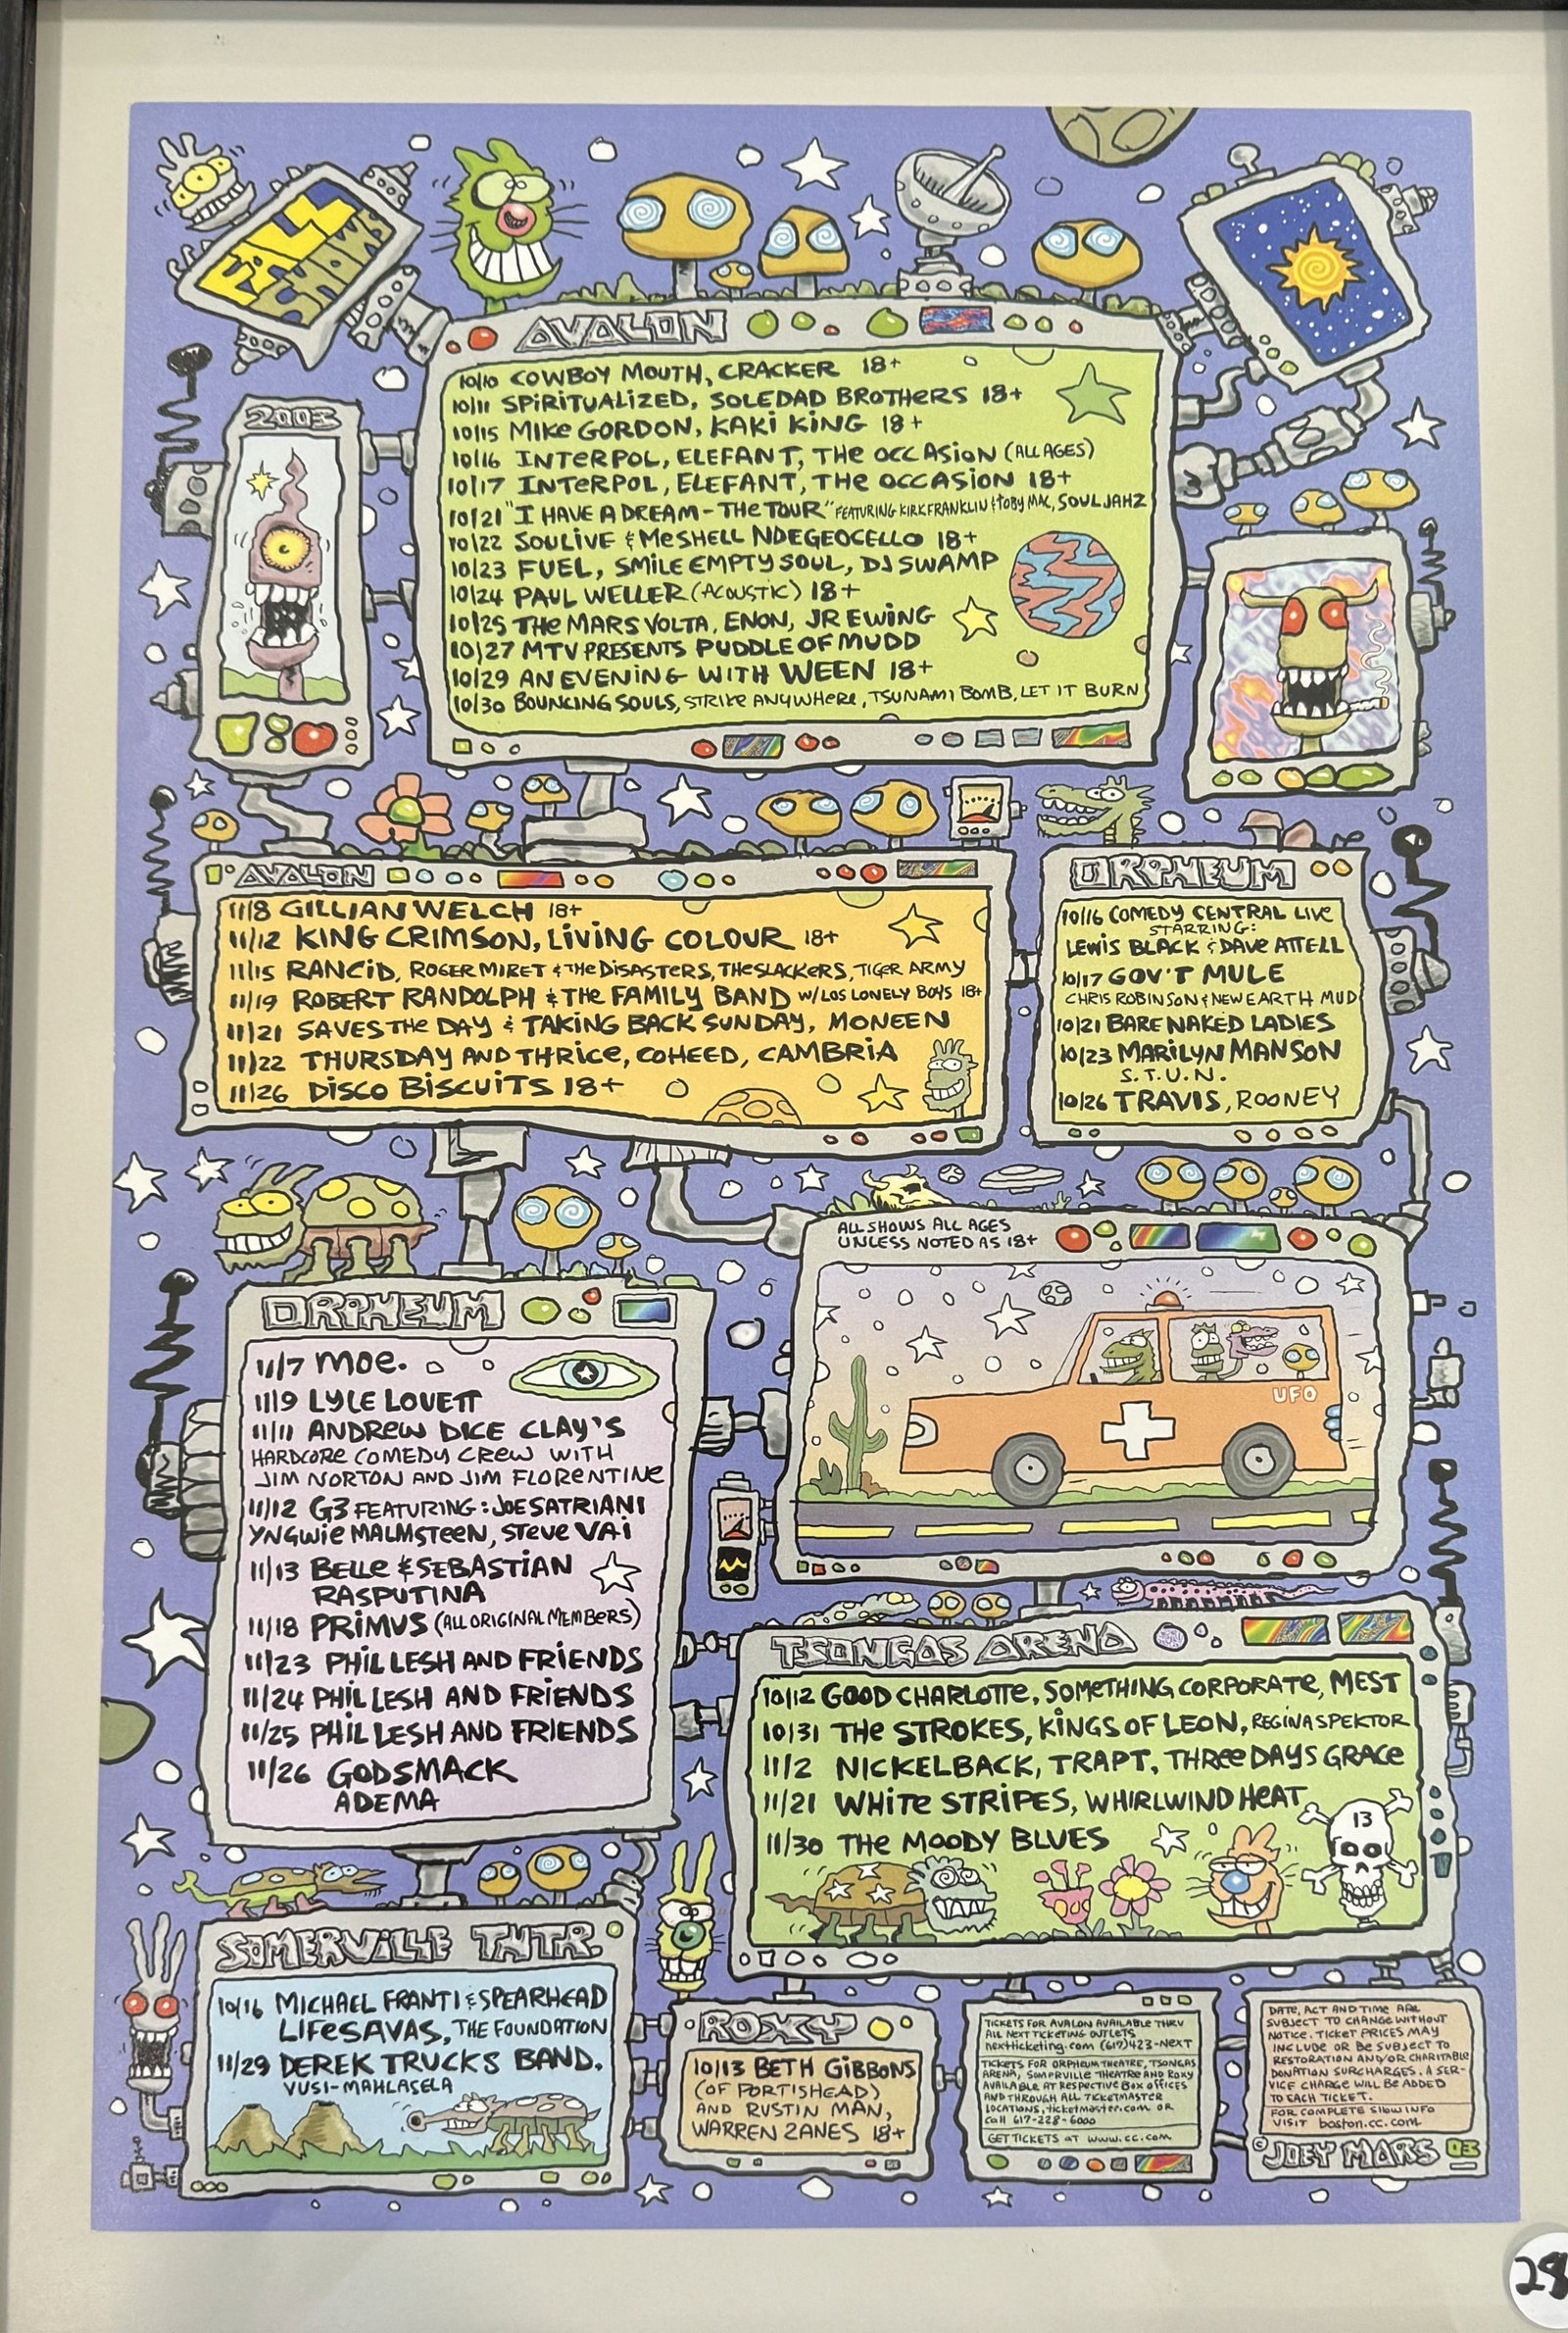 FALL
SHOWS
2003
AVALON
10/10 COWBOY MOUTH, CRACKER 18+
10/11 SPIRITUALIZED, SOLEDAD BROTHERS 18+
10/15 MIKE GORDON, KAKI KING 18+
10/16 INTERPOL, ELEFANT, THE OCCASION (ALL AGES)
10/17 INTERPOL, ELEFANT, THE OCCASION 18+
10/21 "I HAVE A DREAM - THE TOUR" FEATURING KIRK FRANKLIN & TOBY MAC, SOUL JAHZ
10/22 SOULIVE & MESHELL NDEGEOCELLO 18+
10/23 FUEL, SMILE EMPTY SOUL, DJ SWAMP
10/24 PAUL WELLER (ACOUSTIC) 18+
10/25 THE MARS VOLTA, ENON, JR EWING
10/27 MTV PRESENTS PUDDLE OF MUDD
10/29 AN EVENING WITH WEEN 18+
10/30 BOUNCING SOULS, STRIKE ANYWHERE, TSUNAMI BOMB, LET IT BURN
AVALON
11/8 GILLIAN WELCH 18+
11/12 KING CRIMSON, LIVING COLOUR 18+
11/15 RANCID, ROGER MIRET & THE DISASTERS, THE SLACKERS, TIGER ARMY
11/19 ROBERT RANDOLPH & THE FAMILY BAND W/LOS LONELY BOYS 18+
11/21 SAVES THE DAY & TAKING BACK SUNDAY, MONEEN
11/22 THURSDAY AND THRICE, COHEED, CAMBRIA
11/26 DISCO BISCUITS 18+
ORPHEUM
10/16 COMEDY CENTRAL LIVE
STARRING:
LEWIS BLACK & DAVE ATTELL
10/17 GOV'T MULE
CHRIS ROBINSON & NEW EARTH MUD
10/21 BARE NAKED LADIES
10/23 MARILYN MANSON
S.T.U.N.
10/26 TRAVIS, ROONEY
ALL SHOWS ALL AGES
UNLESS NOTED AS 18+
UFO
ORPHEUM
11/7 moe.
11/9 LYLE LOVETT
11/11 ANDREW DICE CLAY'S
HARDCORE COMEDY CREW WITH
JIM NORTON AND JIM FLORENTINE
11/12 G3 FEATURING: JOE SATRIANI
YNGWIE MALMSTEEN, STEVE VAI
11/13 BELLE & SEBASTIAN
RASPUTINA
11/18 PRIMUS (ALL ORIGINAL MEMBERS)
11/23 PHIL LESH AND FRIENDS
11/24 PHIL LESH AND FRIENDS
11/25 PHIL LESH AND FRIENDS
11/26 GODSMACK
ADEMA
TSONGAS ARENA
10/12 GOOD CHARLOTTE, SOMETHING CORPORATE, MEST
10/31 THE STROKES, KINGS OF LEON, REGINA SPEKTOR
11/2 NICKELBACK, TRAPT, THREE DAYS GRACE
11/21 WHITE STRIPES, WHIRLWIND HEAT
11/30 THE MOODY BLUES
13
SOMERVILLE THTR.
10/16 MICHAEL FRANTI & SPEARHEAD
LIFESAVAS, THE FOUNDATION
11/29 DEREK TRUCKS BAND.
VUSI-MAHLASELA
ROXY
10/13 BETH GIBBONS
(OF PORTISHEAD)
AND RUSTIN MAN,
WARREN ZANES 18+
TICKETS FOR AVALON AVAILABLE THRU
ALL NEXT TICKETING OUTLETS
nextticketing.com (617)423-NEXT
TICKETS FOR ORPHEUM THEATRE, TSONGAS
ARENA, SOMERVILLE THEATRE AND ROXY
AVAILABLE AT RESPECTIVE BOX OFFICES
AND THROUGH ALL TICKETMASTER
LOCATIONS, ticketmaster.com OR
call 617-228-6000
GET TICKETS AT www.cc.com
DATE, ACT AND TIME ARE
SUBJECT TO CHANGE WITHOUT
NOTICE. TICKET PRICES MAY
INCLUDE OR BE SUBJECT TO
RESTORATION AND/OR CHARITABLE
DONATION SURCHARGES. A SER-
VICE CHARGE WILL BE ADDED
TO EACH TICKET.
FOR COMPLETE SHOW INFO
VISIT boston.cc.com
© JOEY MARS 03
28